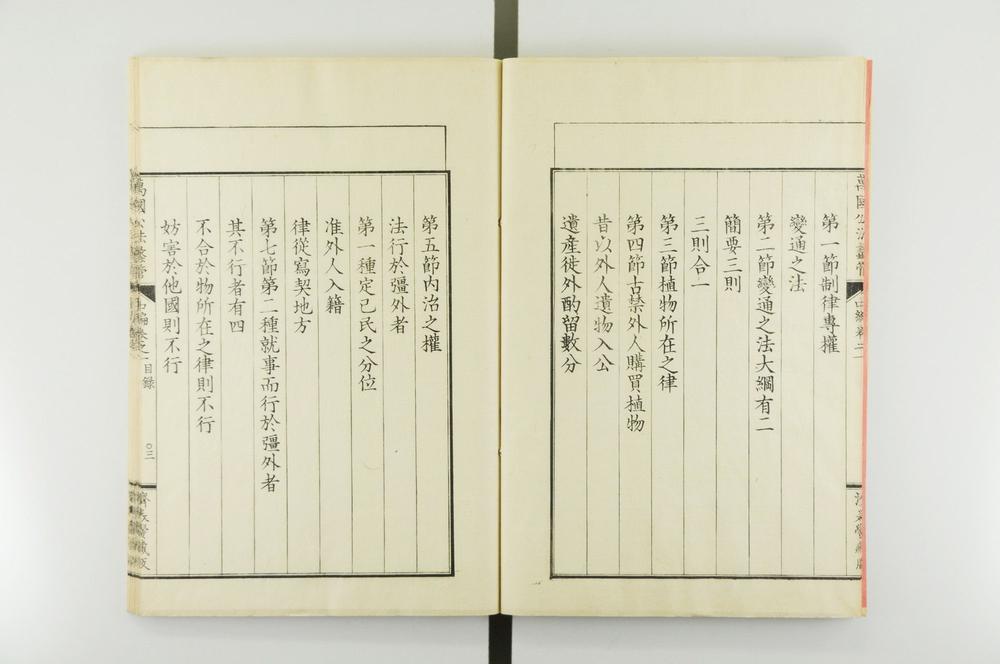 第一節制律專權
變通之法
第二節變通之法大綱有二
簡要三則
三則合一
第三節植物所在之律
第四節古禁外人購買植物
昔以外人遺物入公
遺産徒外酌留數分
第五節內治之權
法行於彊外者
第一種定己民之分位
准外人入籍
律從寫契地方
第七節第二種就事而行於彊外者
其不行者有四
不合於物所在之律則不行
妨害於他國則不行
萬國公法蠡管
目錄
〇三